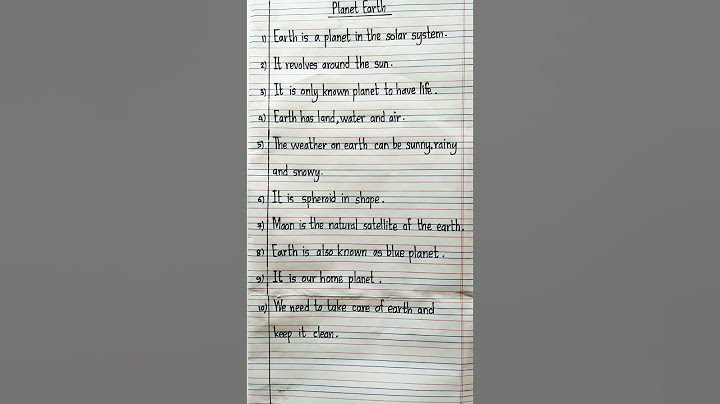 Planet Earth
1) Earth is a planet in the solar system.
2) It revolves around the sun.
3) It is only known planet to have life.
4) Earth has land, water and air.
5) The weather on earth can be sunny, rainy
and snowy.
6) It is spheroid in shape.
7) Moon is the natural satellite of the earth.
8) Earth is also known as blue planet.
9) It is our home planet.
10) We need to take care of earth and
keep it clean.